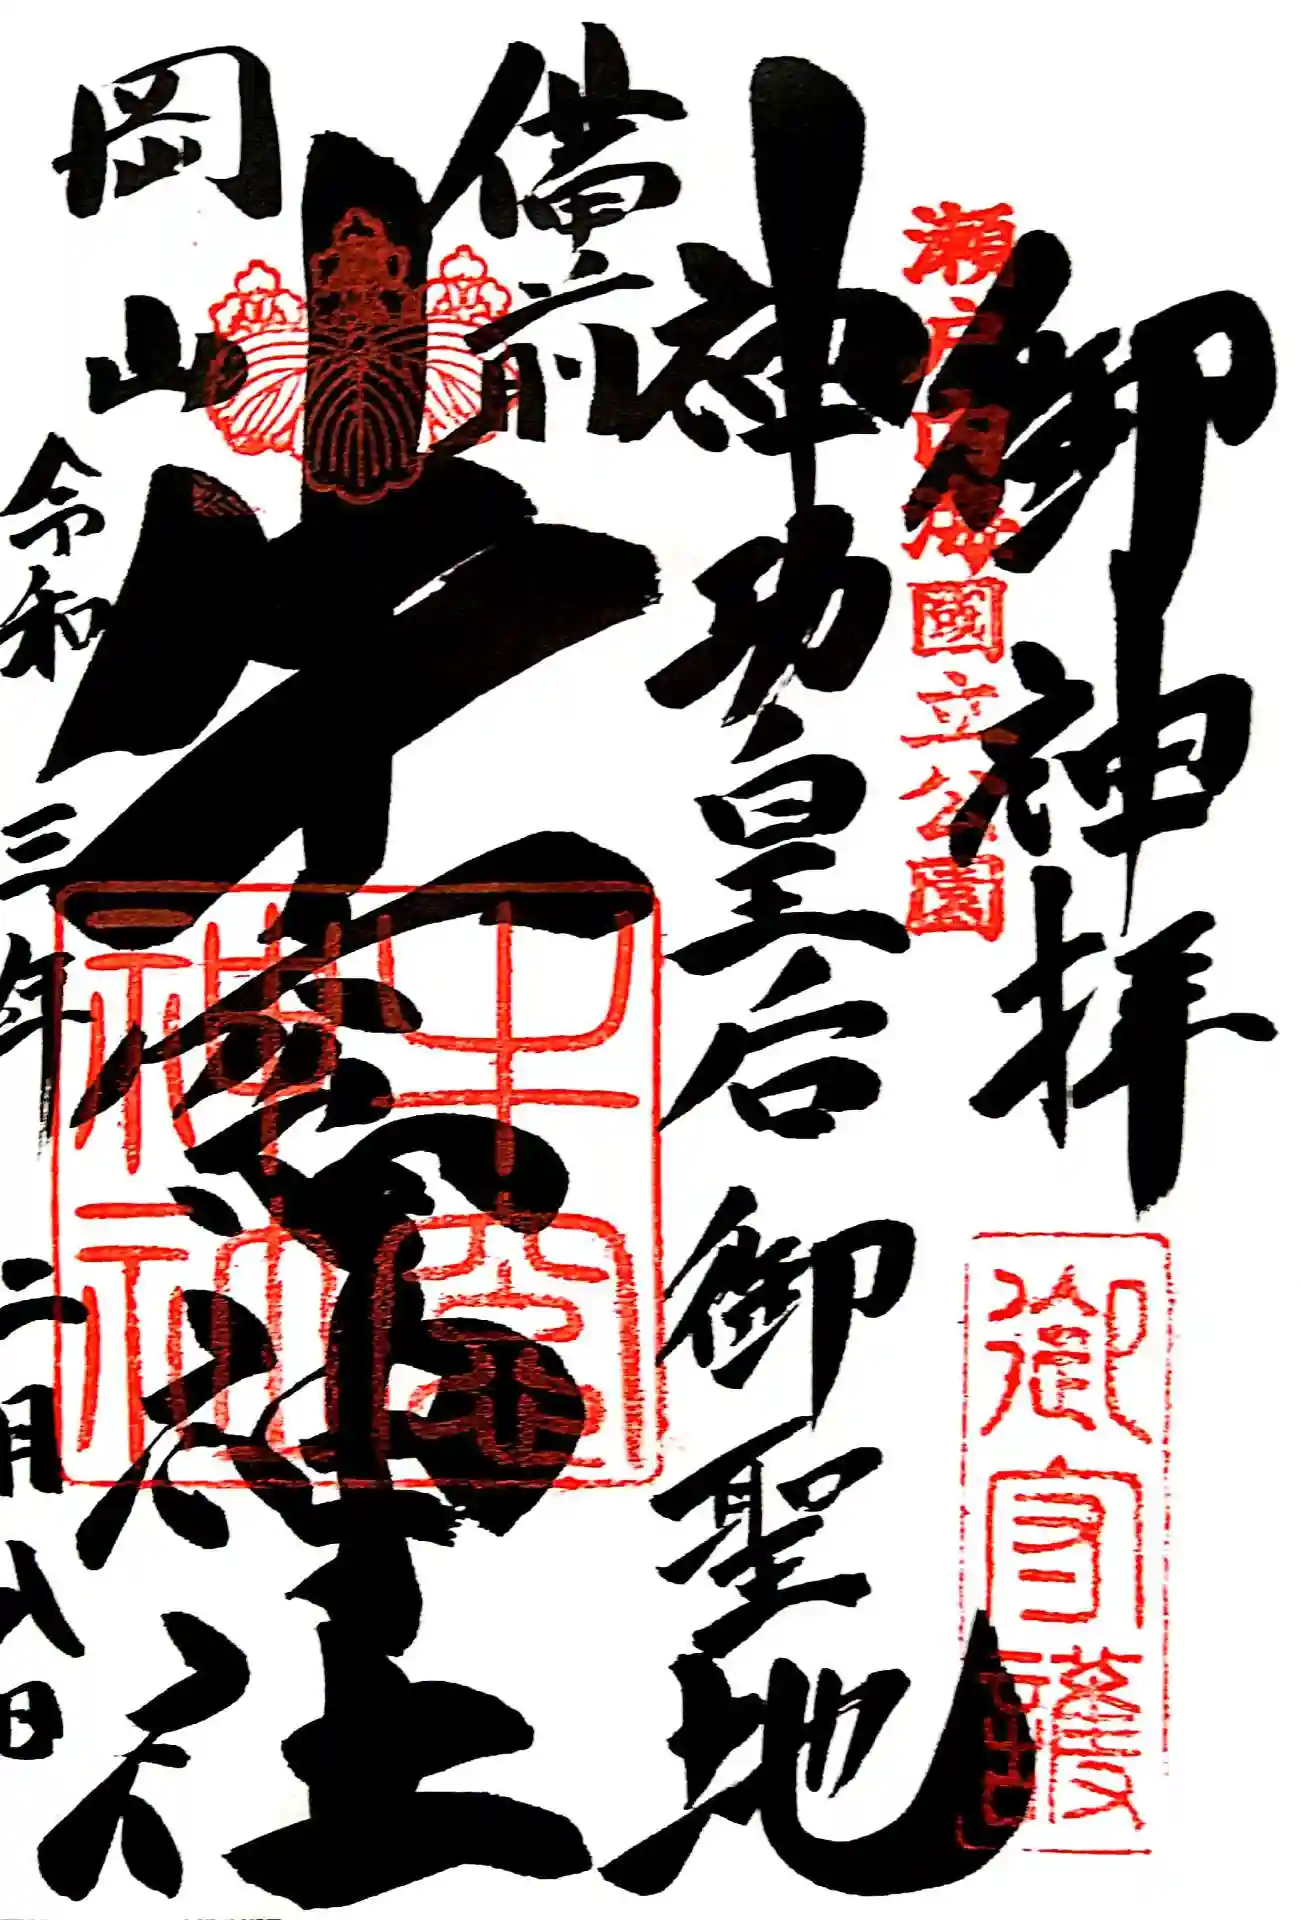 御神拝
瀬戸内海國立公園
御守護
神功皇后御聖地
備前
牛窓神社
牛窓神社
岡山
令和三年二月八日